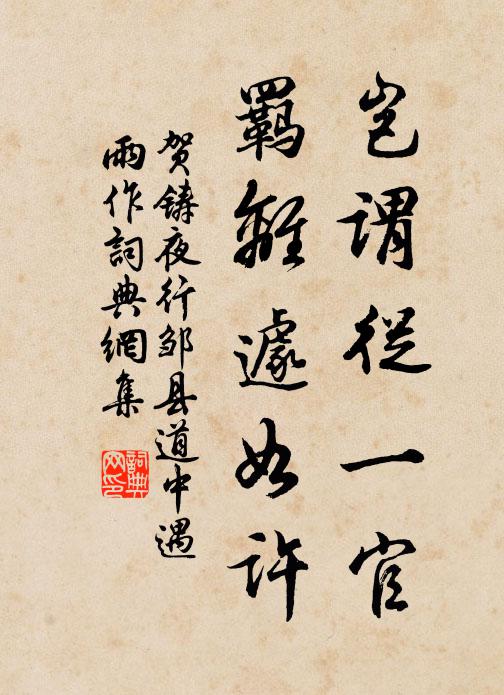 岂谓從一官
羁離遽如许
贺鑄夜行邹县道中遇
雨作詞典網集
詞典
网印